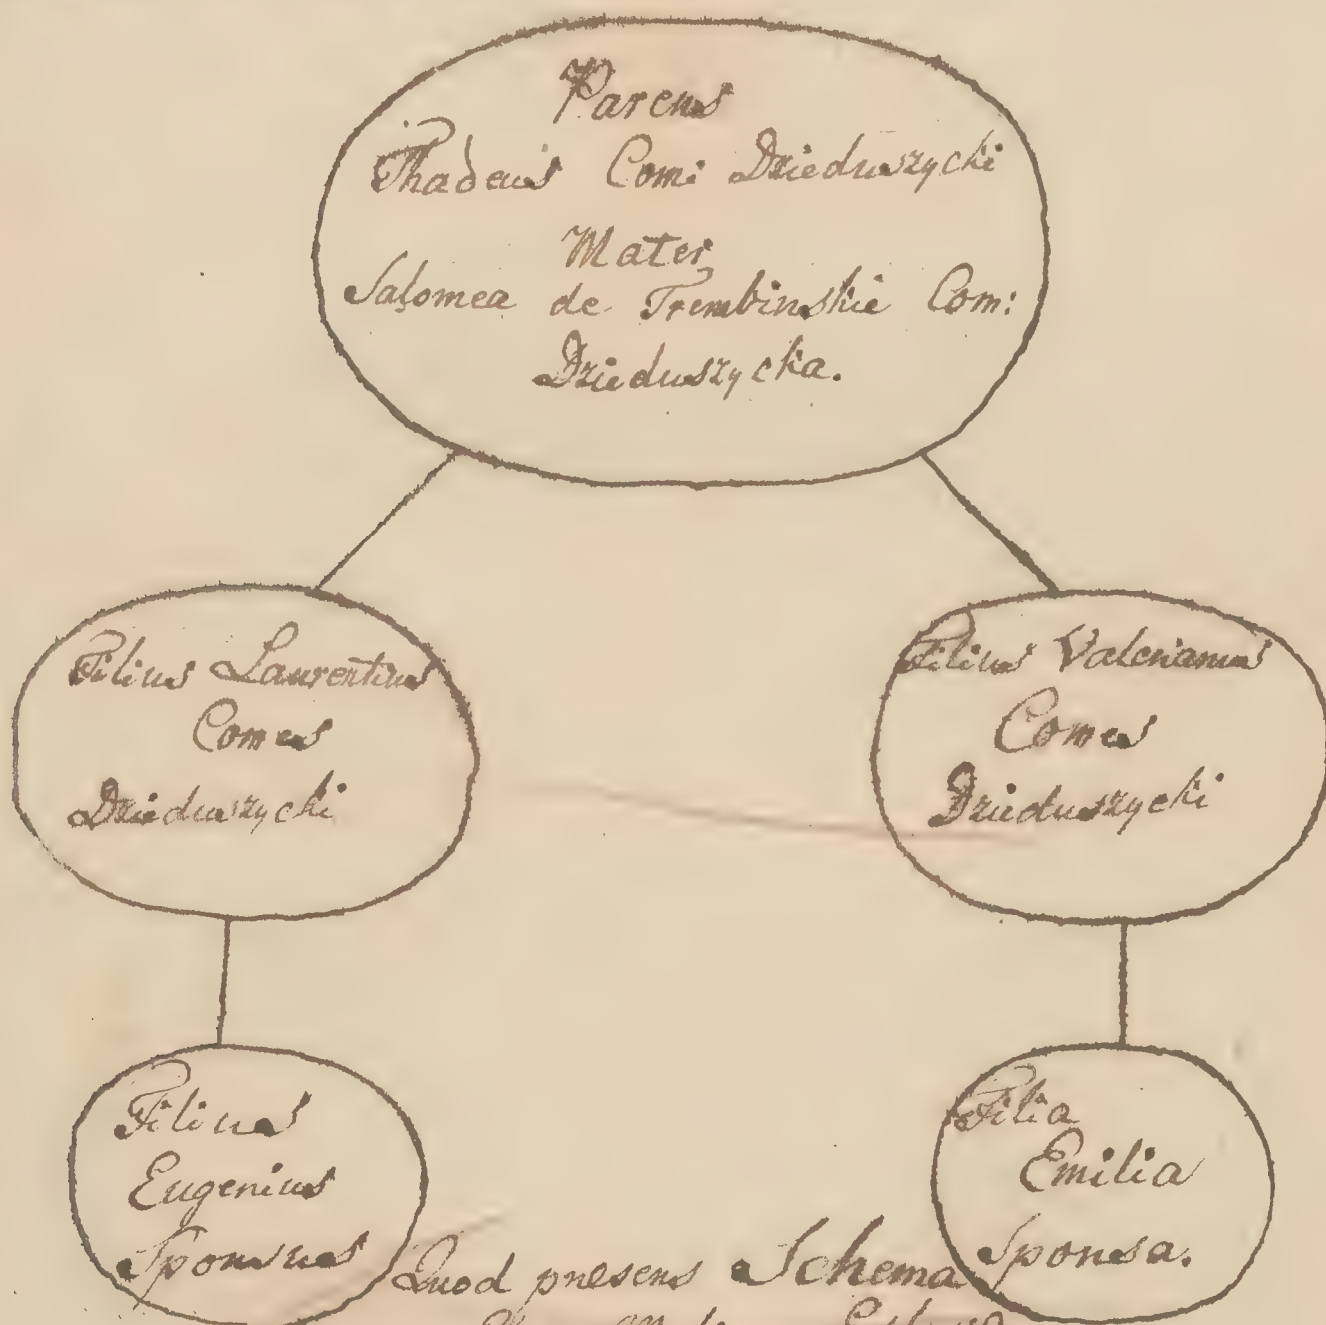 Parens
Thadeus Comi: Dzieduszycki
Mater
Salomea de Trembinskie Com:
Dzieduszycka.
Filius Laurentius
Comes
Dzieduszycki
Filius Valerianus
Comes
Dzieduszycki
Filius
Eugenius
Sponsus
Filia
Emilia
Sponsa.
Quod presens Schema